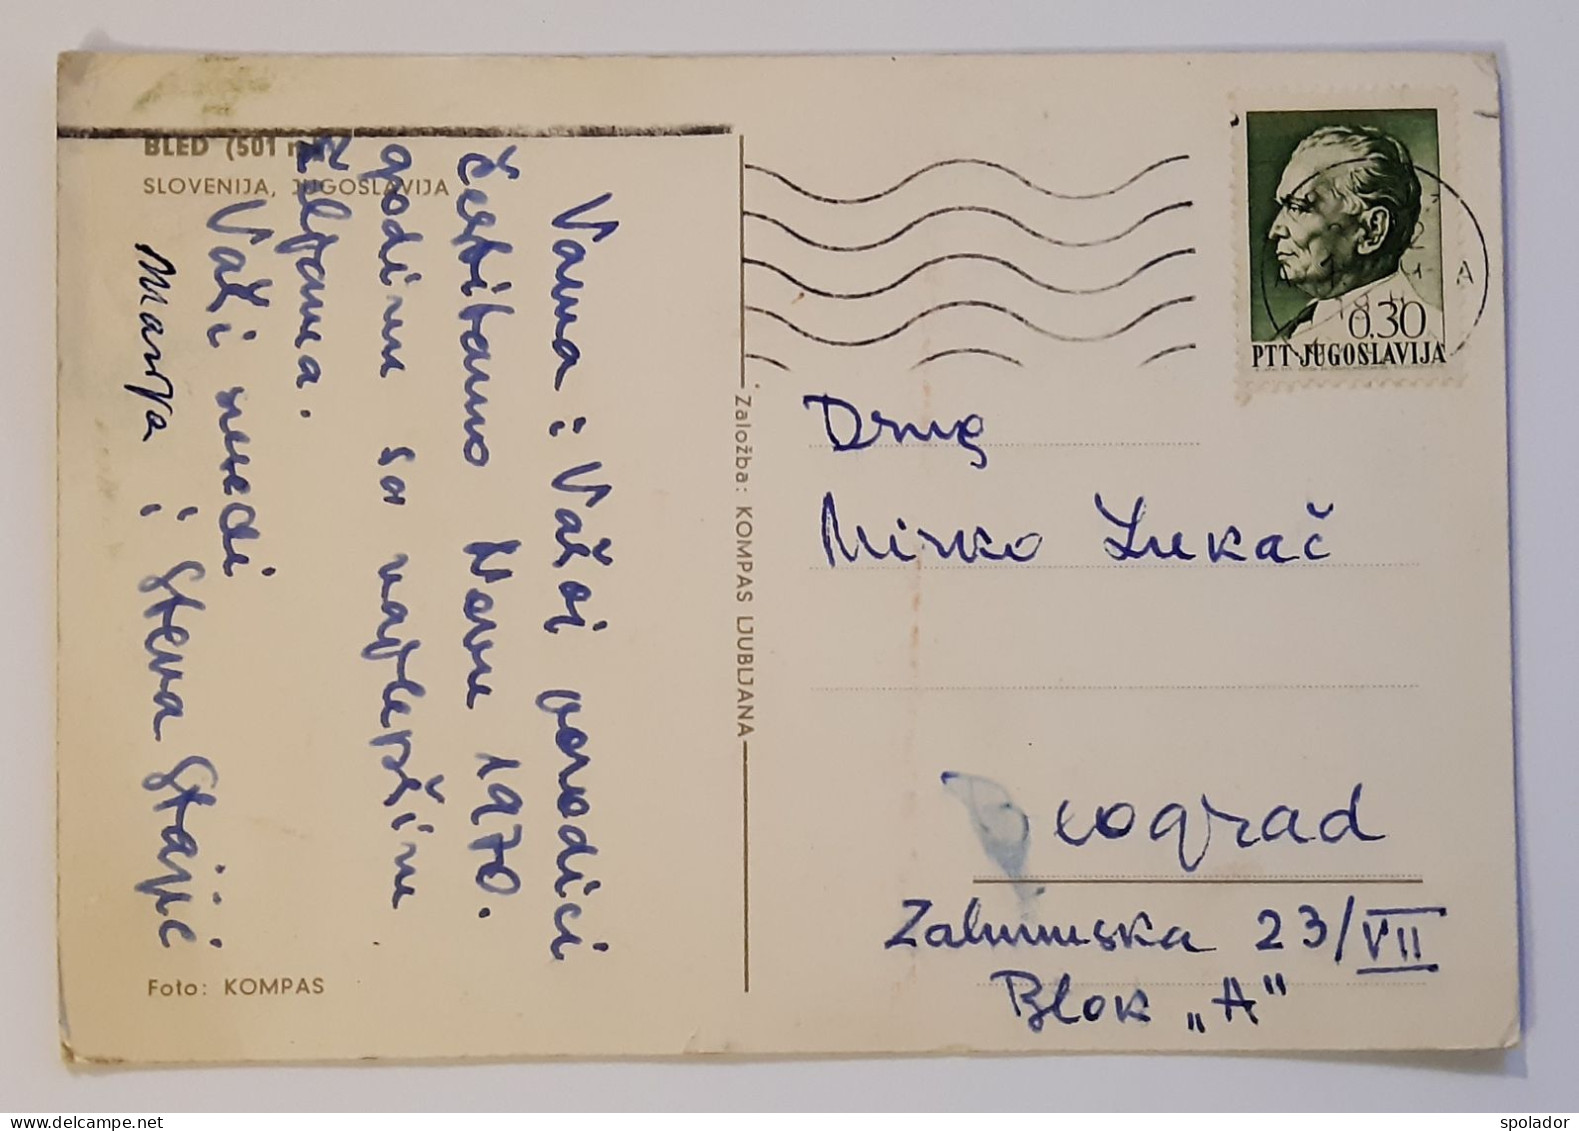 BLED (501 m)
SLOVENIJA, JUGOSLAVIJA
Vama i Vašoj porodici
čestitamo Novu 1970.
godinu sa najlepšim
željama.
Vaši
Marija i Steva Stajić
Foto: KOMPAS
Založba: KOMPAS LJUBLJANA
0.30
PTT-JUGOSLAVIJA
Drug
Mirko Lukač
Beograd
Zahumska 23/VII
Blok „A"
spolador